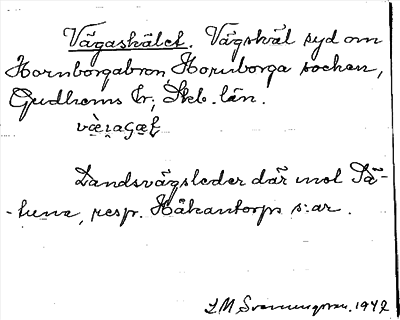 Vägaskälet. Vägskäl syd om
Hornborgabron, Hornborga socken,
Gudhems hr; Skb. län.
Landsvägsleder där mot Då-
-tuna, resp. Håkantorps s:ar.
L M Svenungsson. 1942